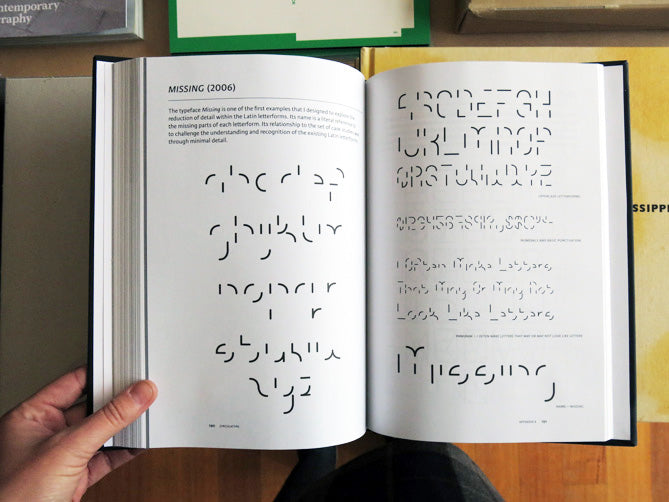 ntemporary
graphy
MISSING (2006)
The typeface Missing is one of the first examples that I designed to explore the
reduction of detail within the Latin letterforms. Its name is a literal reference to
the missing parts of each letterform. Its relationship to the set of
to challenge the understanding and recognition of the existing Latin letterforms
through minimal detail.
abcdef
ghijklm
nopqr
stuvwx
yz
190
ABCDEFGH
IJKLMNOP
QRSTUVWXYZ
UPPERCASE LETTERFORMS
1234567890
NUMERALS AND BASIC PUNCTUATION
I Often Make Letters
That May Or May Not
Look Like Letters
PANGRAM – I OFTEN MAKE LETTERS THAT MAY OR MAY NOT LOOK LIKE LETTERS
Missing
NAME – MISSING
191
SSIPPI